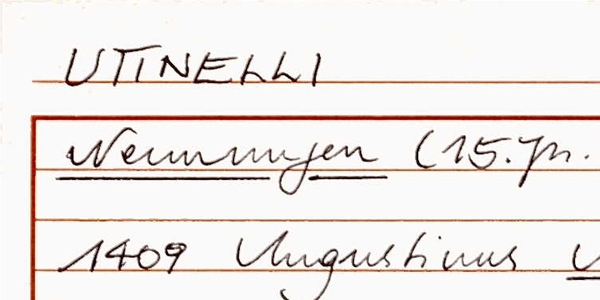 UTINELLI
Nennungen (15. Jh.
1409 Augustinus